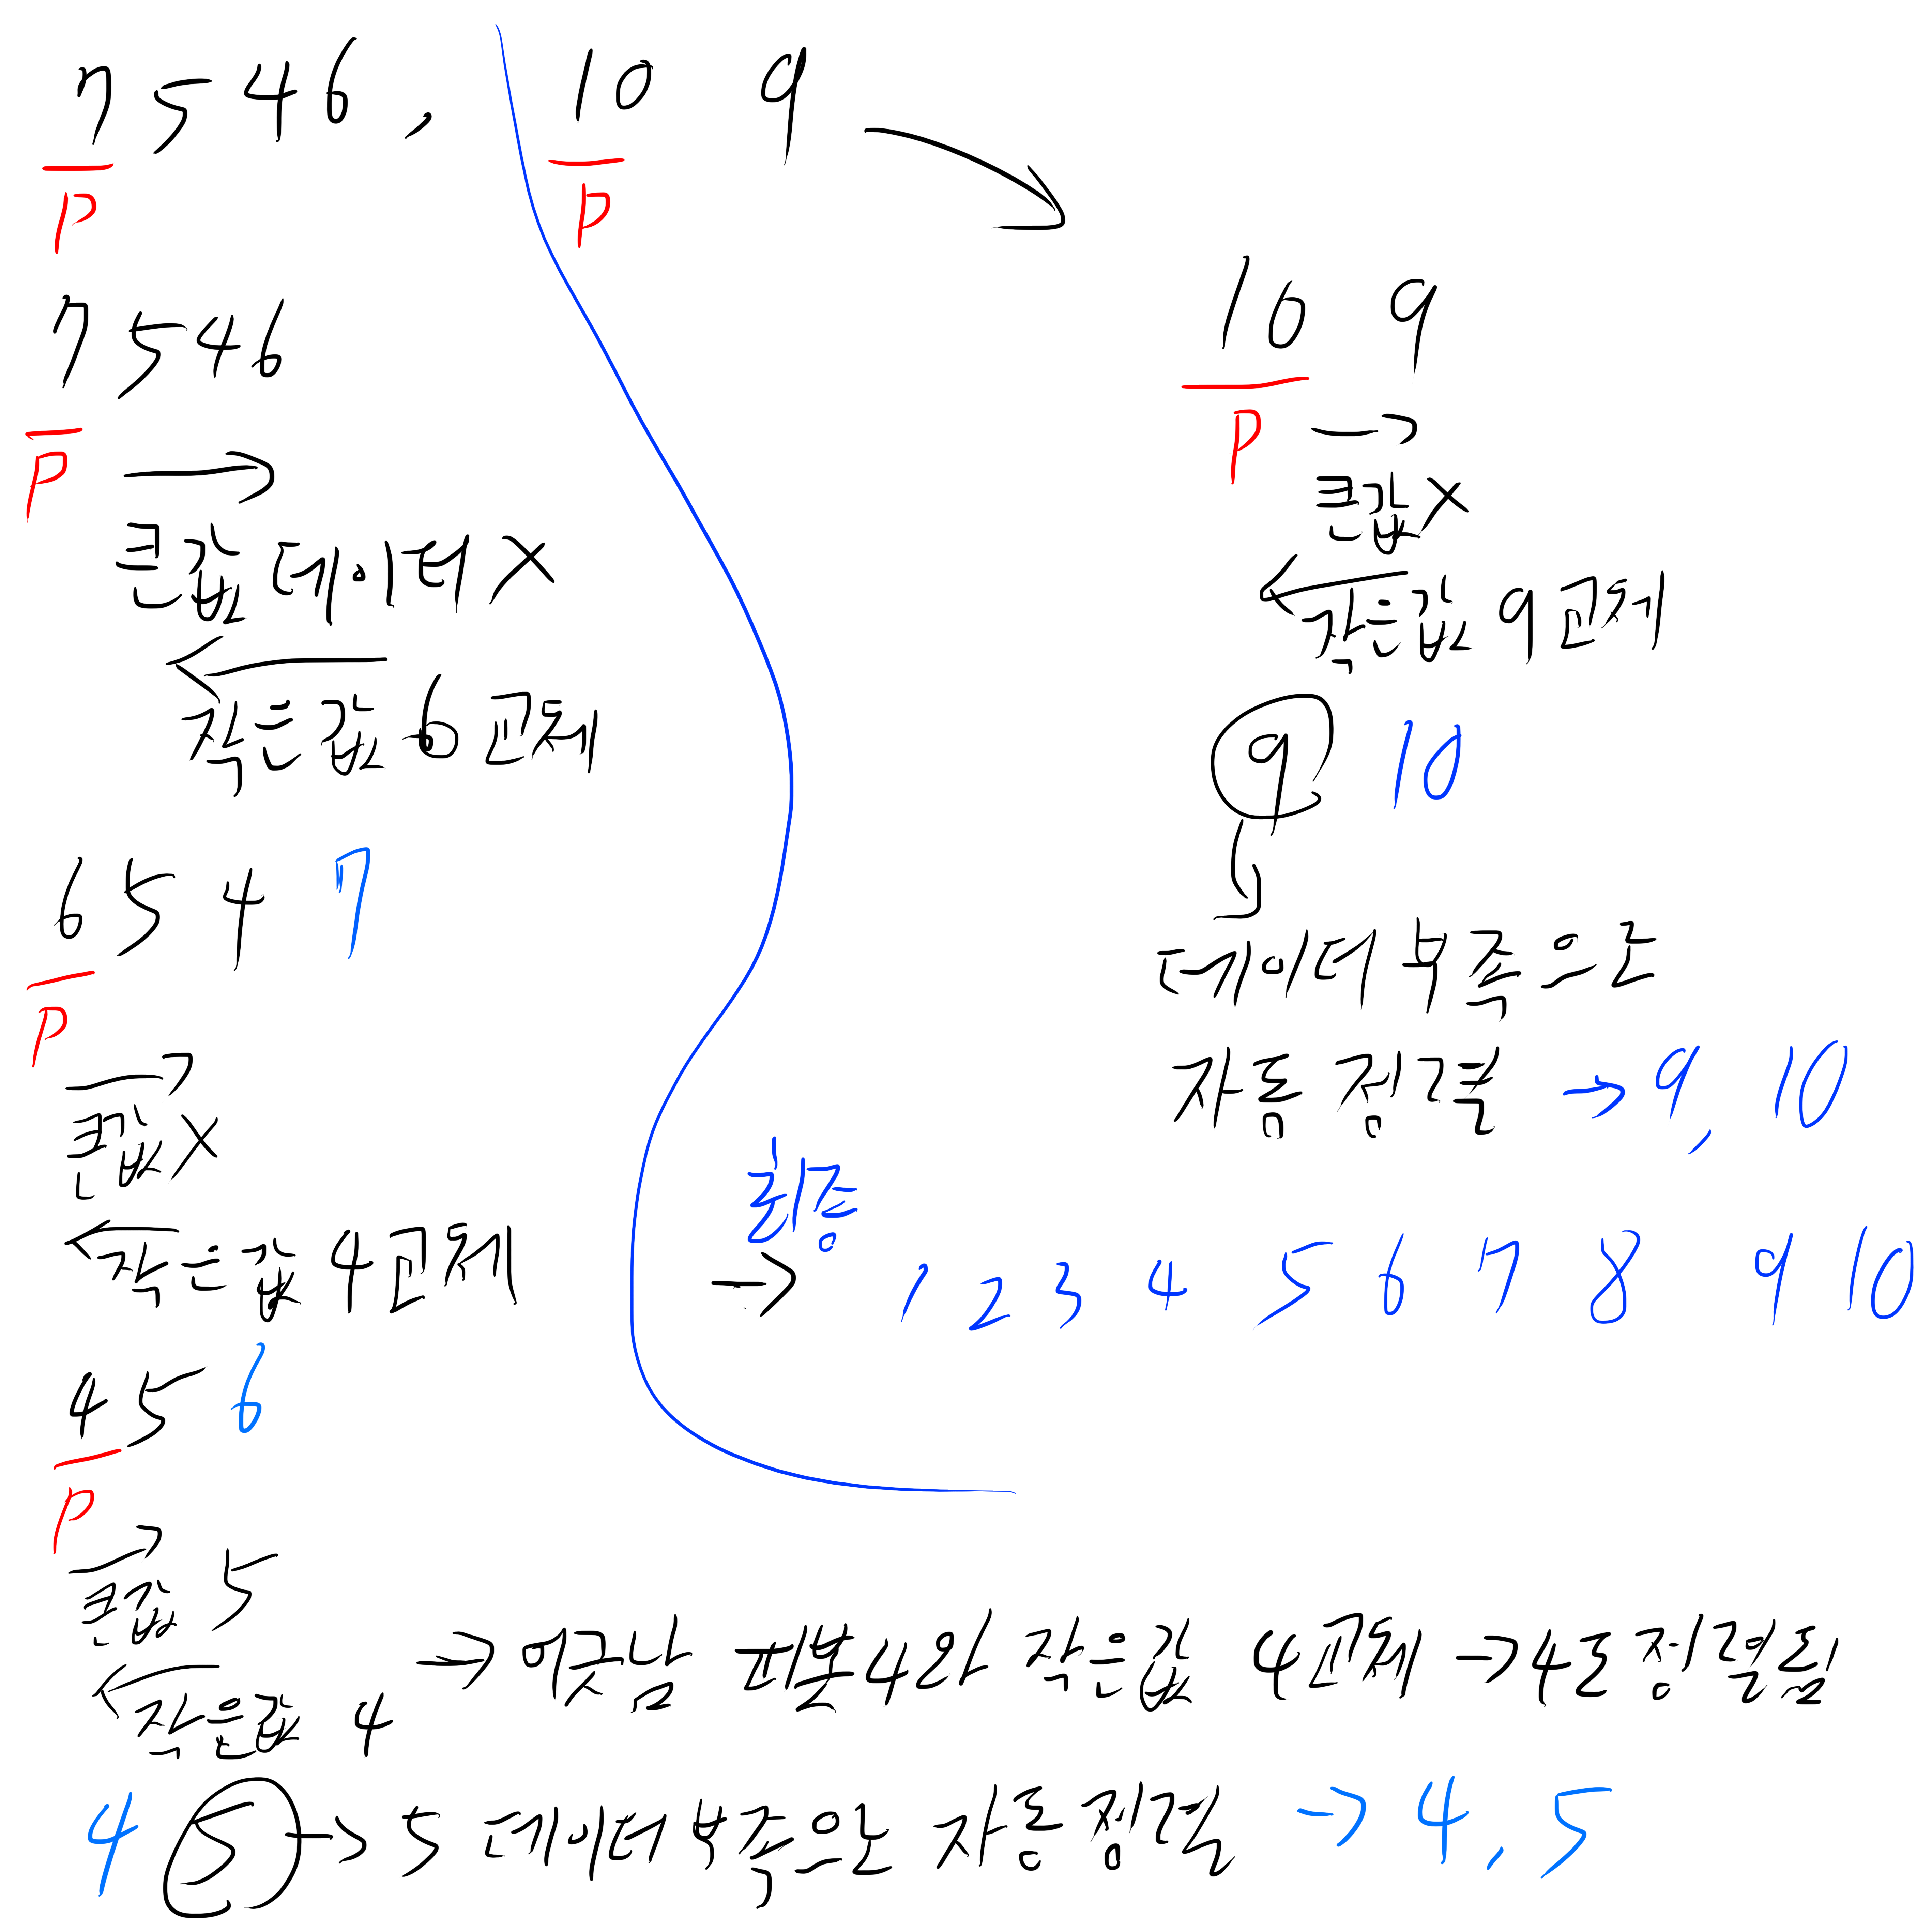 7 5 4 6 ,
P
7 5 4 6
P
→
큰값 데이터 X
←
작은값 6 교체
6 5 4 7
P
→
큰값 X
←
작은값 4 교체
4 5 6
P
→
큰값 5
←
작은값 4
→ 엇갈남 피봇 4와 작은값 4 교체 → 4로 정렬됨
4 5 → 5 데이터 부족으로 자동정렬 → 4, 5
10 9
P
10 9
P →
큰값 X
←
작은값 9 교체
9 10
데이터 부족으로
자동 정렬 → 9, 10
최종
→ 1, 2 3 4 5 6 7 8 9 10